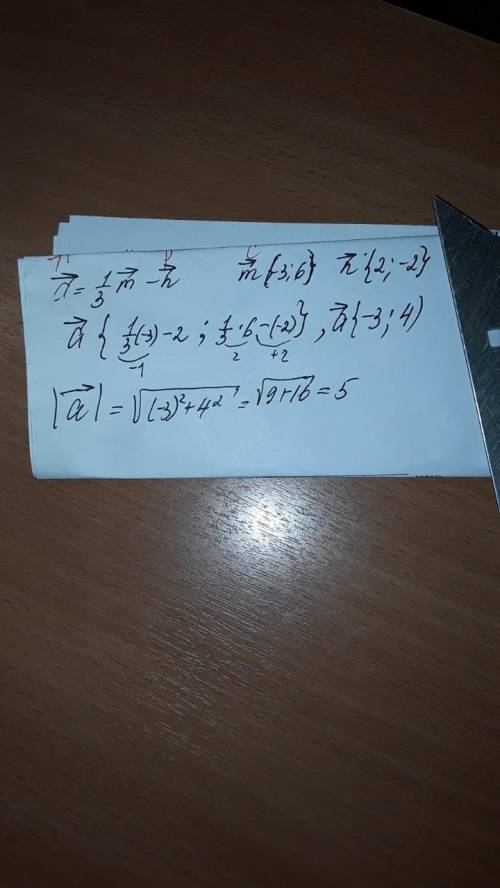 a⃗ = 1/3 m⃗ − n⃗ m⃗ {-3; 6} n⃗ {2; -2}
a⃗ { 1/3(-3) − 2 ; 1/3 · 6 − (-2) }, a⃗ {-3; 4)
-1 2 +2
|a⃗| = √(-3)² + 4² = √9 + 16 = 5